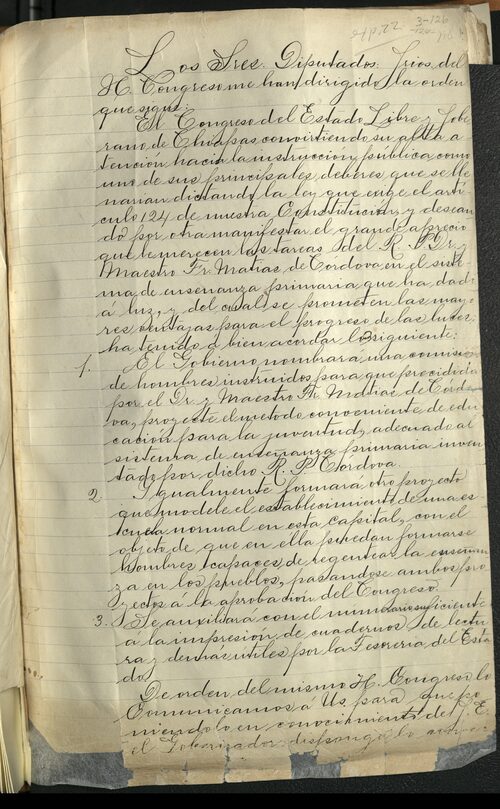 3-126
Los Sres. Diputados Srios. del
H. Congreso me han dirigido la orden
que sigue:
El Congreso del Estado Libre y Sobe
rano de Chiapas convirtiendo su alta a
tención hacia la instrucción pública como
uno de sus principales deberes que se lle
narian dictando la ley que exige el arti
culo 124 de nuestra Constitución, y desean
do por otra manifestar el grande aprecio
que le merecen las tareas del R. P. Dr. y
Maestro Fr. Matias de Córdova en el siste
ma de enseñanza primaria que ha dado
á luz, y del cual se prometen las mayo
res ventajas para el progreso de las luces,
ha tenido á bien acordar lo siguiente:
1. El Gobierno nombrará una comisión
de hombres instruidos para que precidida
por el Dr. y Maestro Fr. Matias de Córdo
va, proyecte el metodo conveniente de edu
cación para la juventud, adecuado al
sistema de enseñanza primaria inven
tado por dicho R. P. Córdova.
2 Igualmente formará otro proyecto
que modele el establecimiento de una es
cuela normal en esta capital, con el
objeto de que en ella puedan formarse
hombres capaces de regentear la enseñan
za en los pueblos, pasandose ambos pro
yectos á la aprobación del Congreso.
3. Se auxiliará con el numerario suficiente
á la impresión de cuadernos de lectu
ra y demás utiles por la Tesoreria del Esta
do.
De orden del mismo H. Congreso lo
Comunicamos á Us. para que po
niendolo en conocimiento del S. E.
el Gobernador disponga lo